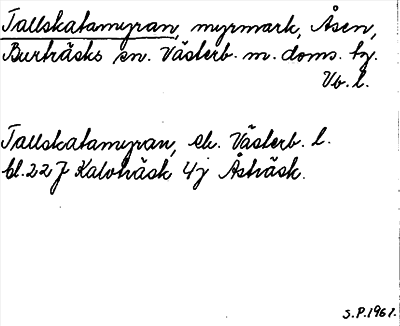 Tallskatamyran, myrmark, Åsen,
Burträsks sn. Västerb. m. doms. hg.
Vb. l.
Tallskatamyran, ek. Västerb. l.
bl. 22 J Kalvträsk 4j Åsträsk.
S.P. 1961.